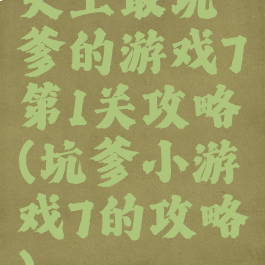 史上最坑
爹的游戏7
第1关攻略
(坑爹小游
戏7的攻略
)